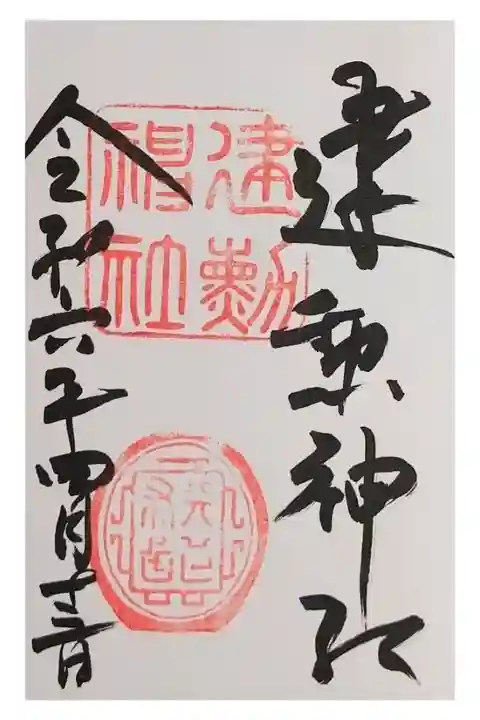 建勲神社
建勳
神社
令和六年四月十三日